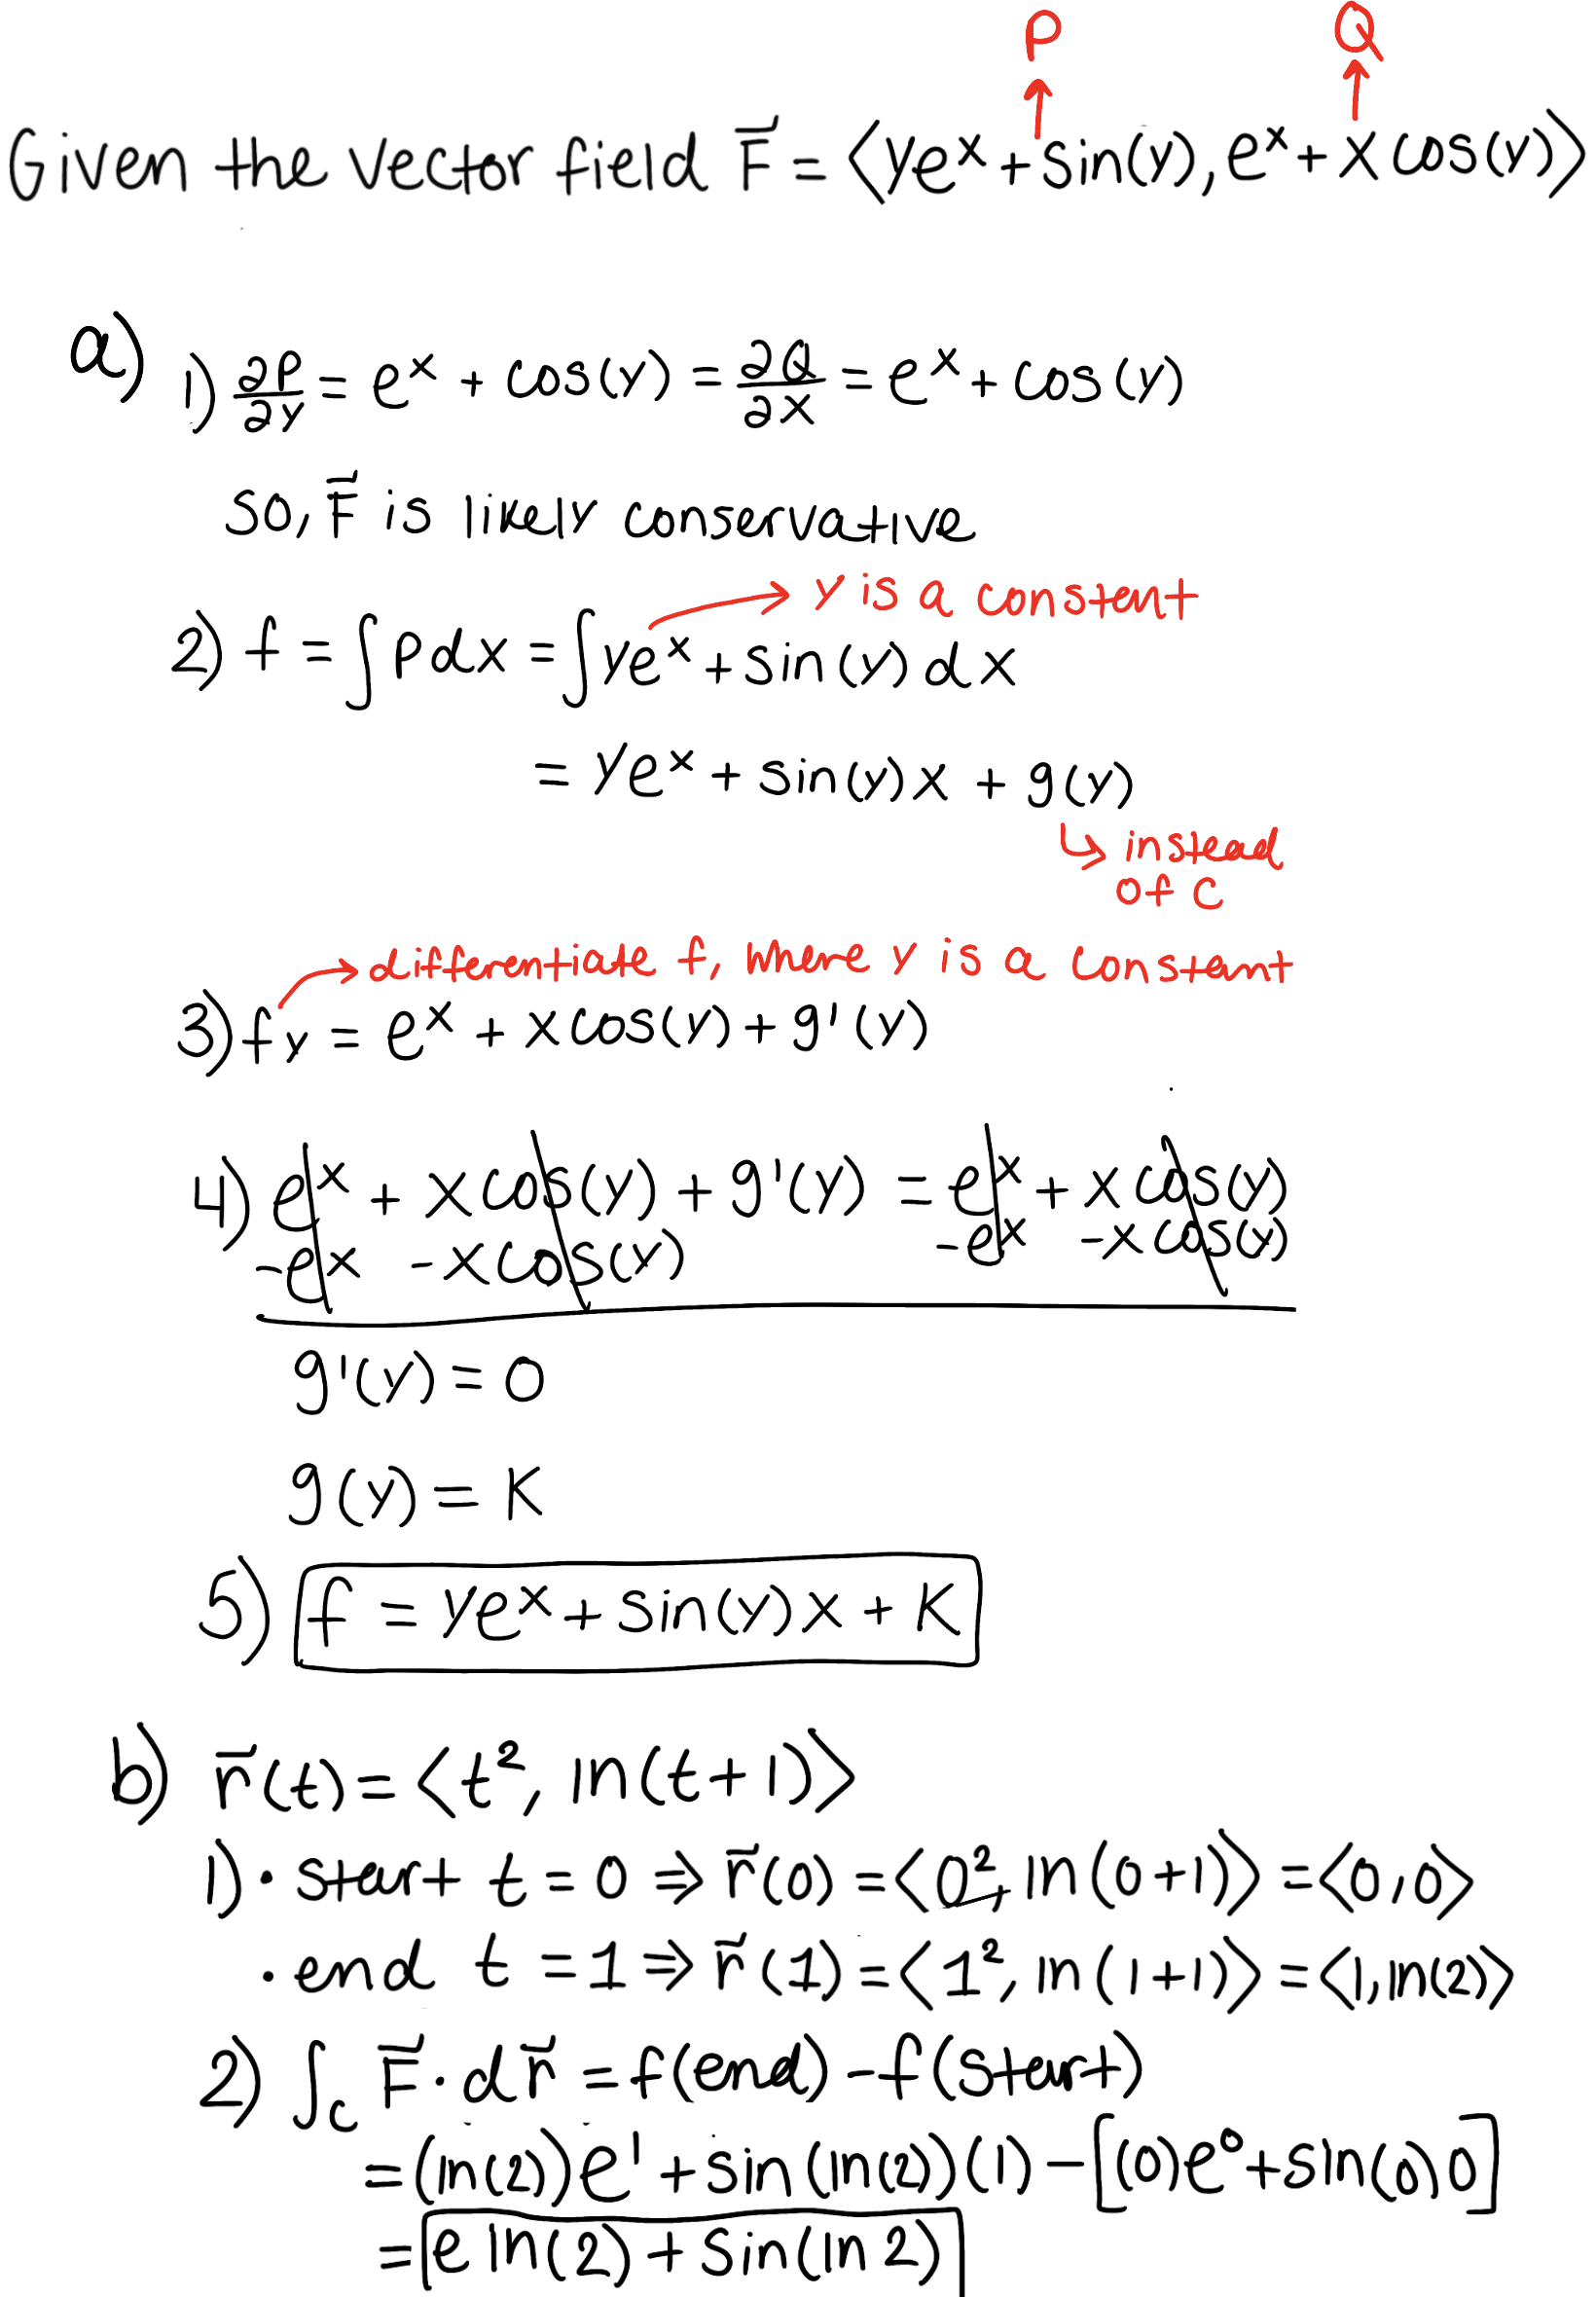 P Q
Given the vector field F⃗ = ⟨ye^x + sin(y), e^x + x cos(y)⟩
a) 1) ∂P/∂y = e^x + cos(y) = ∂Q/∂x = e^x + cos(y)
so, F⃗ is likely conservative
y is a constent
2) f = ∫ P dx = ∫ ye^x + sin(y) dx
= ye^x + sin(y) x + g(y)
instead
of C
differentiate f, where y is a constant
3) fy = e^x + x cos(y) + g'(y)
4) e^x + x cos(y) + g'(y) = e^x + x cos(y)
-e^x - x cos(y) -e^x - x cos(y)
g'(y) = 0
g(y) = K
5) f = ye^x + sin(y) x + K
b) r⃗(t) = ⟨t², ln(t+1)⟩
1) • start t = 0 ⇒ r⃗(0) = ⟨0², ln(0+1)⟩ = ⟨0,0⟩
• end t = 1 ⇒ r⃗(1) = ⟨1², ln(1+1)⟩ = ⟨1, ln(2)⟩
2) ∫c F⃗ · dr⃗ = f(end) - f(start)
= (ln(2))e^1 + sin(ln(2))(1) - [(0)e^0 + sin(0)0]
= e ln(2) + sin(ln 2)